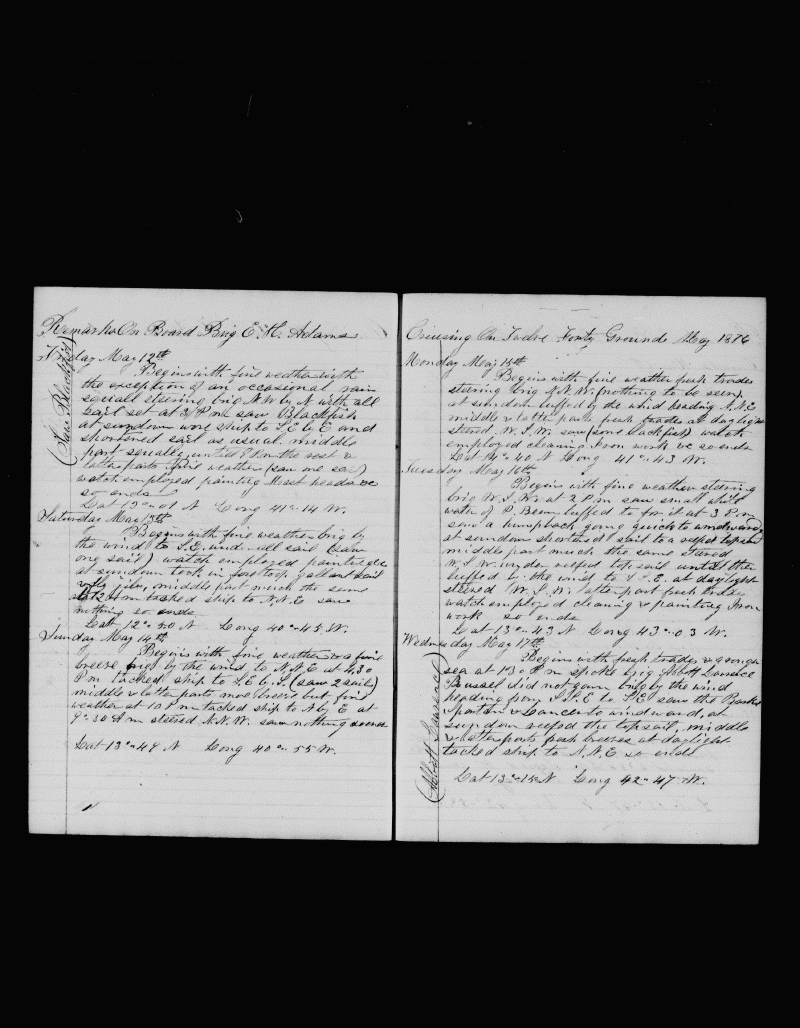 Remarks On Board Brig E. H. Adams
Friday May 12th
(Saw Blackfish)
Begins with fine weather with
the exception of an occasional rain
squall steering brig N.W. by N with all
sail set at 3 P.m. saw Blackfish
at sundown wore ship to S.E by E and
shortened sail as usual. middle
part squally until the rest &
latter parts fine weather (saw one sail)
watch employed painting Mast heads &c
so ends
Lat 13° 01 N Long 41° 14 W.
Saturday May 13th
Begins with fine weather brig by
the wind to S.E. under all sail (saw
one sail) watch employed painting &c
at sundown took in foretop gallant sail
& fly jibe, middle part much the same
at 12 A m tacked ship to N.N.E saw
nothing so ends
Lat 12° 50 N Long 40° 45 W.
Sunday May 14th
Begins with fine weather & a fine
breeze brig by the wind to N.N.E at 4.30
P m tacked ship to S.E by S. (saw 2 sails)
middle & latter parts more breeze but fine
weather at 10 P m tacked ship to N by E at
9.30 A m steered N.N.W. saw nothing so ends
Lat 13° 49 N Long 40° 55 W.
Cruising On Twelve Forty Ground May 1876
Monday May 15th
Begins with fine weather fresh trades
steering brig N.N.W. (nothing to be seen)
at sundown luffed by the wind heading N.N.E
middle & latter parts fresh trades at daylight
steered W.S.W. saw (some blackfish) watch
employed cleaning Iron work &c so ends
Lat 14° 40 N Long 41° 43 W.
Tuesday May 16th
Begins with fine weather steering
brig W.S.W. at 2 P.m saw small white
water off P. Beam luffed to for it at 3 P.m
saw a humpback going quick to windward
at sundown shortened sail to a reefed topsail
middle part much the same steered
W.S.W. under reefed top sail until then
luffed by the wind to S.S.E. at daylight
steered W.S.W. latter part fresh trades
watch employed cleaning & painting Iron
work so ends
Lat 13° 43 N Long 43° 03 W.
Wednesday May 17th
(Abbott Lawrence)
Begins with fresh trades &
sea at 1.30 P m spoke brig Abbott Lawrence
did not gam brig by the wind
heading from S.S.E to S.E saw the Barks
Spartan & Lancer to windward, at
sundown reefed the topsail, middle
& latter parts fresh breezes at daylight
tacked ship to N.N.E so ends
Lat 13° 15 N Long 42° 47 W.